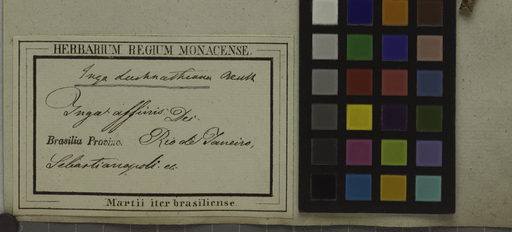 HERBARIUM REGIUM MONACENSE.
Inga Benth
Inga affinis Dec.
Brasilia Provinc. Rio de Janeiro,
Sebastianopoli. etc.
Martii iter brasiliense.